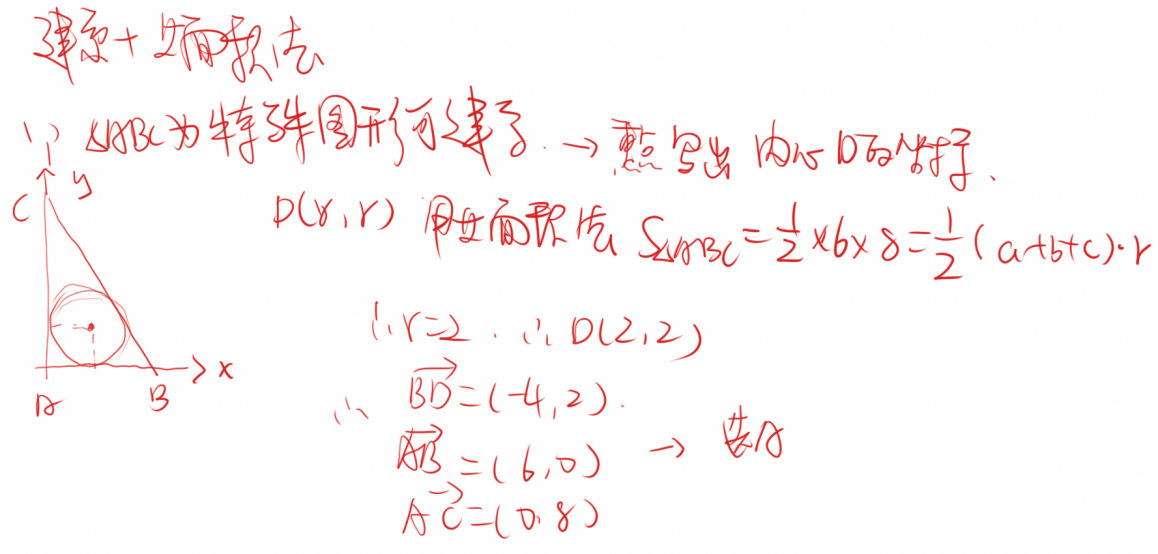 建系+等面积法
∵△ABC为特殊图形可建系.→重点写出内心D的坐标.
D(r,r) 用等面积法 S△ABC=½×6×8=½(a+b+c)·r
∴r=2.∴D(2,2)
∴ BD→=(-4,2).
AB→=(6,0) → 选A
AC→=(0,8)
y
C
x
A
B